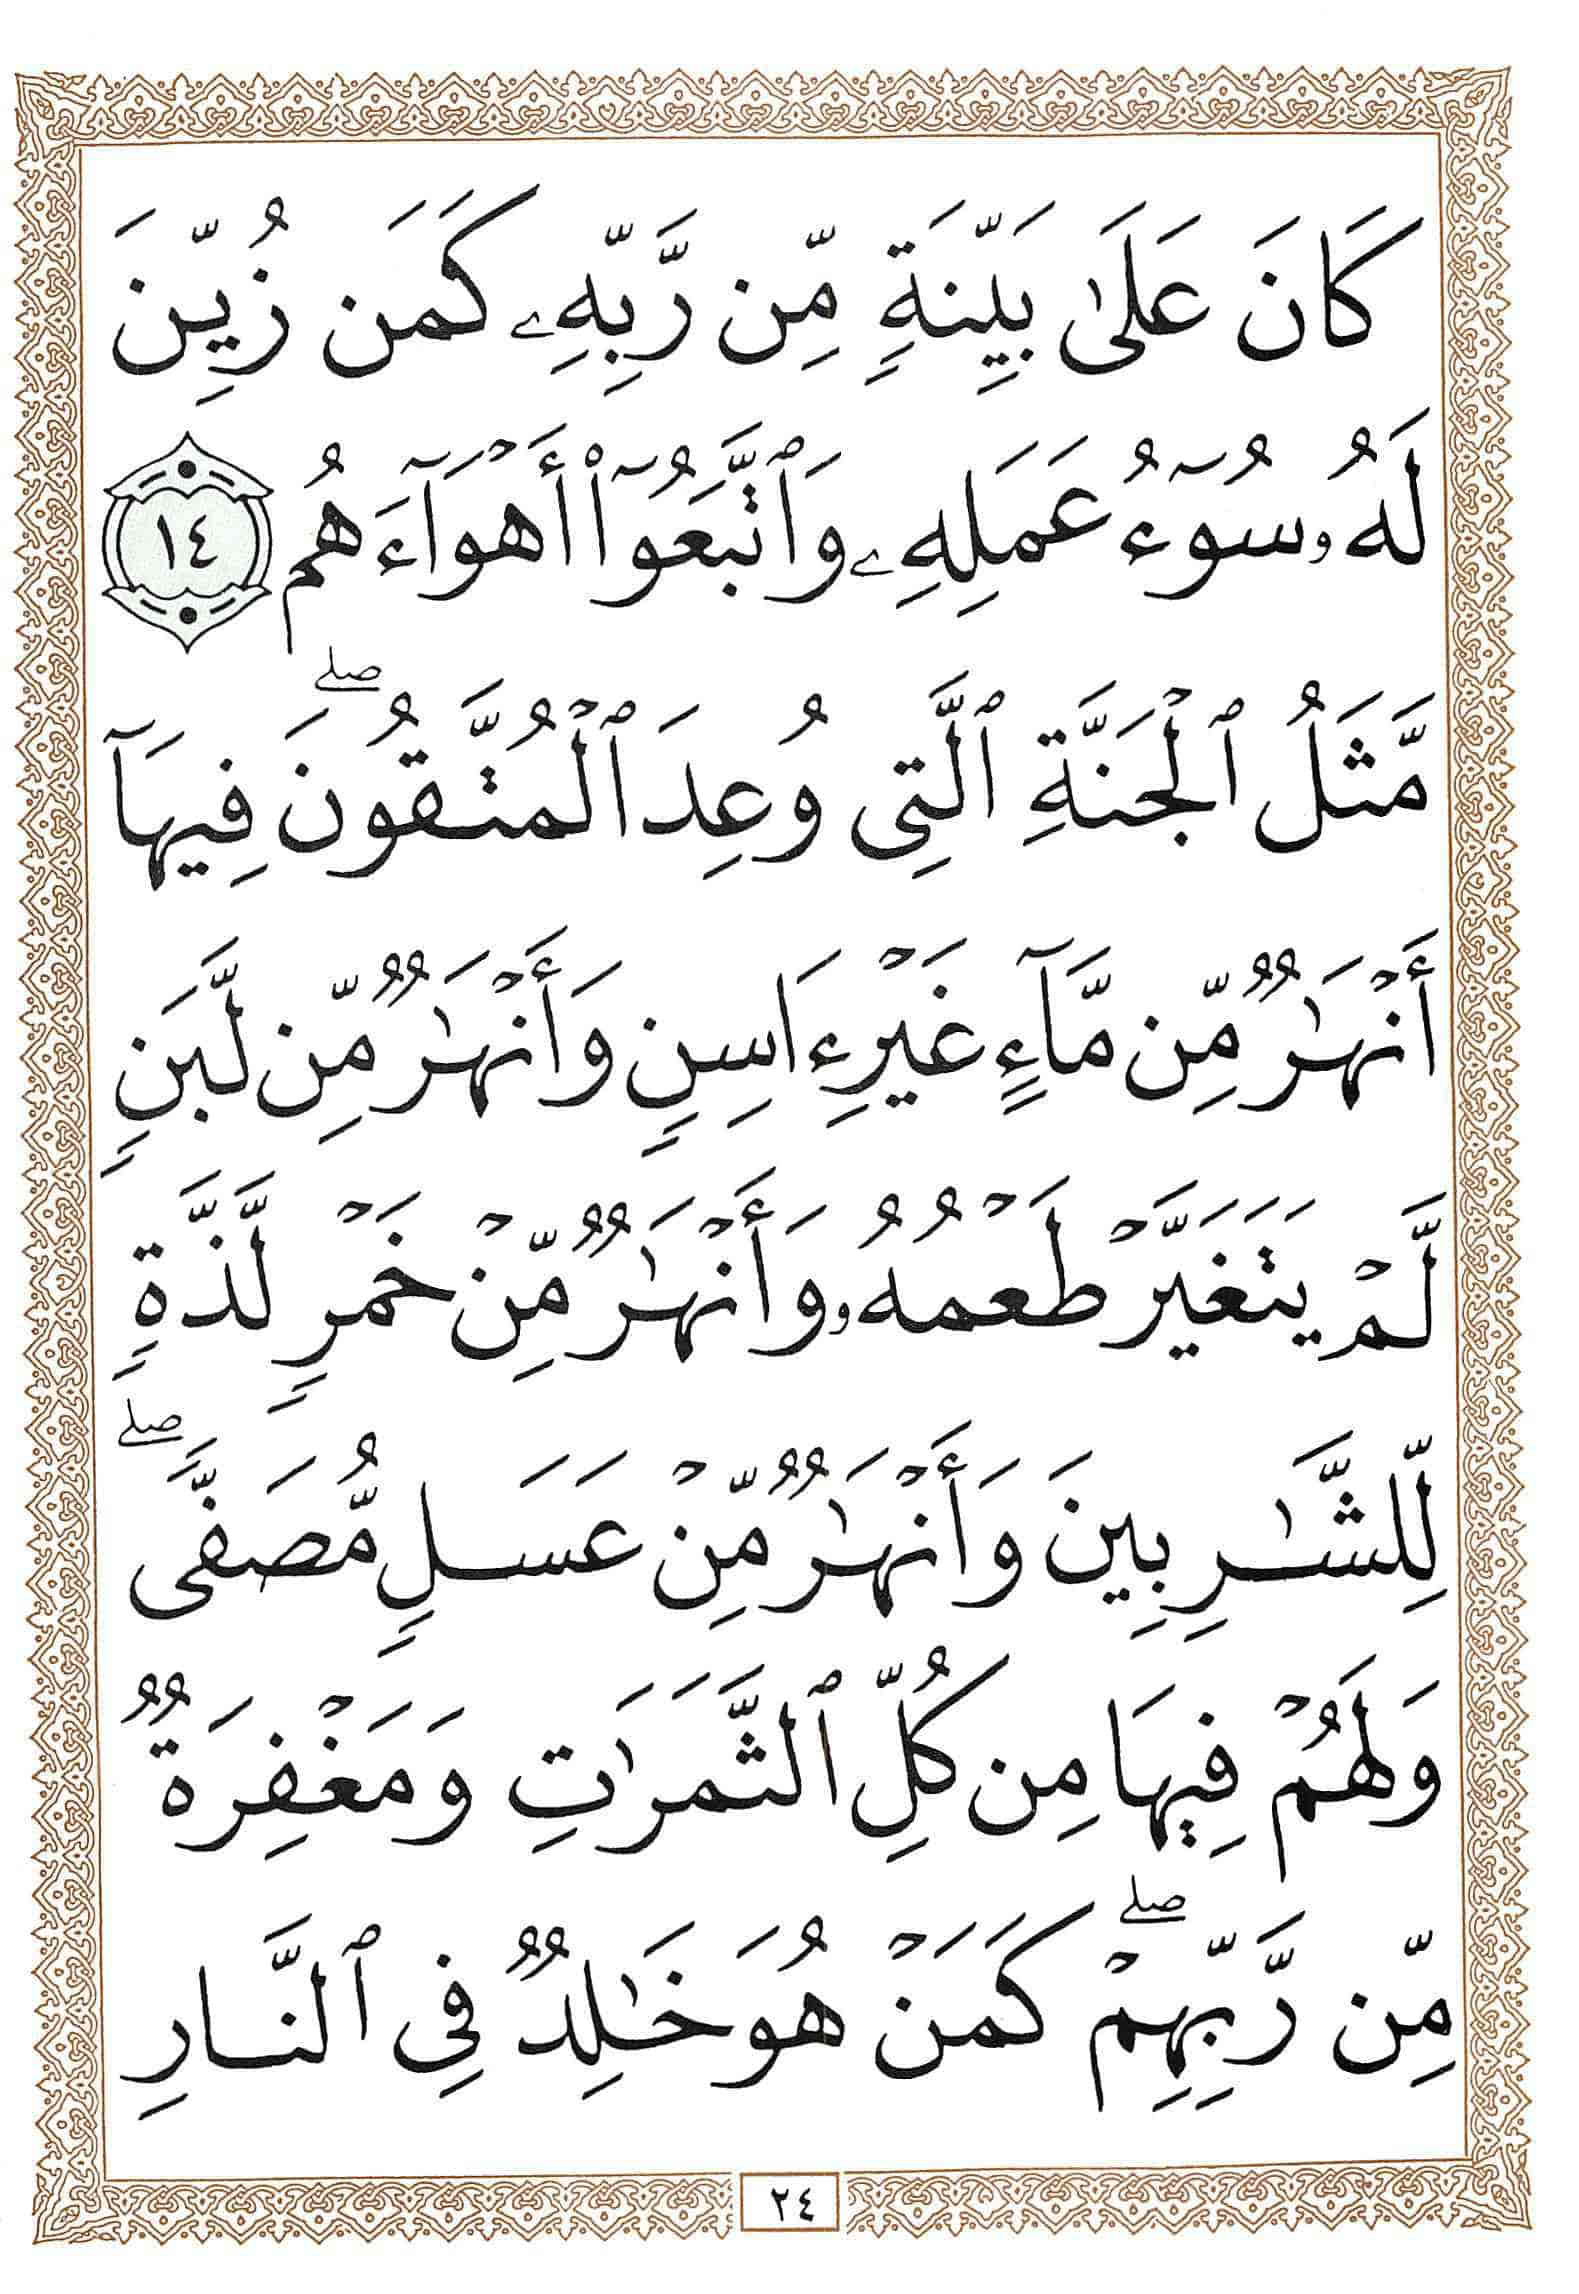 كَانَ عَلَىٰ بَيِّنَةٍ مِّن رَّبِّهِۦ كَمَن زُيِّنَ
لَهُۥ سُوٓءُ عَمَلِهِۦ وَٱتَّبَعُوٓا۟ أَهْوَآءَهُم ١٤
مَّثَلُ ٱلْجَنَّةِ ٱلَّتِى وُعِدَ ٱلْمُتَّقُونَ ۖ فِيهَآ
أَنْهَٰرٌ مِّن مَّآءٍ غَيْرِ ءَاسِنٍ وَأَنْهَٰرٌ مِّن لَّبَنٍ
لَّمْ يَتَغَيَّرْ طَعْمُهُۥ وَأَنْهَٰرٌ مِّنْ خَمْرٍ لَّذَّةٍ
لِّلشَّٰرِبِينَ وَأَنْهَٰرٌ مِّنْ عَسَلٍ مُّصَفًّى ۖ
وَلَهُمْ فِيهَا مِن كُلِّ ٱلثَّمَرَٰتِ وَمَغْفِرَةٌ
مِّن رَّبِّهِمْ ۖ كَمَنْ هُوَ خَٰلِدٌ فِى ٱلنَّارِ
٢٤